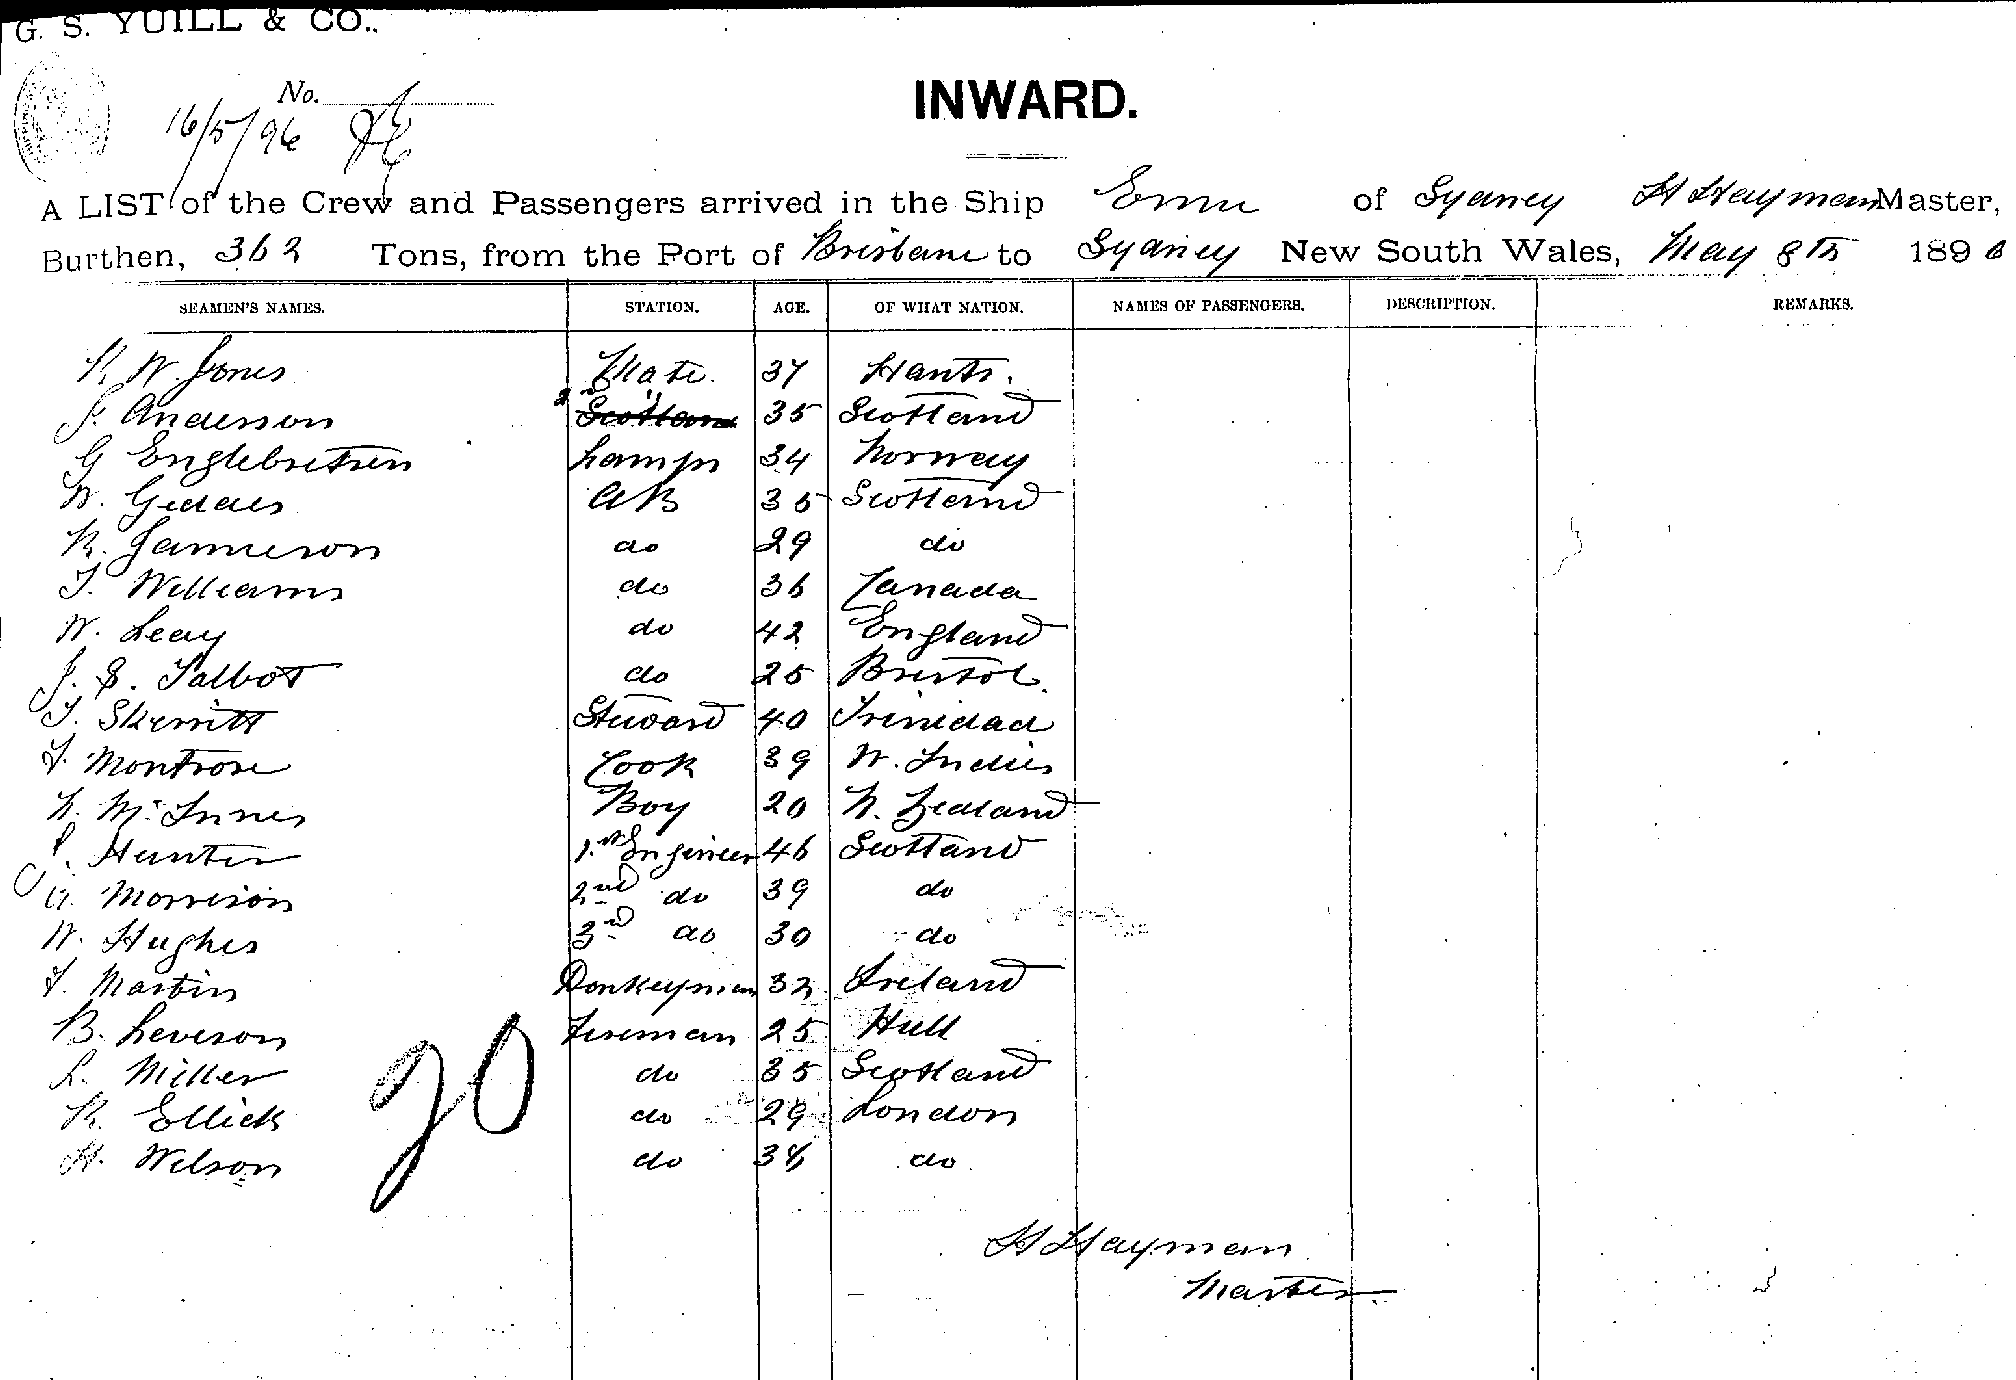 G. S. YUILL & CO.
No.
16/5/96
INWARD.
A LIST of the Crew and Passengers arrived in the Ship Emu of Sydney H Hayman Master,
Burthen, 362 Tons, from the Port of Brisbane to Sydney New South Wales, May 8th 1896
SEAMEN'S NAMES. STATION. AGE. OF WHAT NATION. NAMES OF PASSENGERS. DESCRIPTION. REMARKS.
R W. Jones Mate. 37 Hants.
J. Anderson 2nd " Scotland 35 Scotland
G Englebretsen Lamps 34 Norway
W. Geddes AB 35 Scotland
R. Jamieson do 29 do
T. Williams do 36 Canada
W. Leay do 42 England
J. S. Talbot do 25 Bristol.
T. Skerritt Steward 40 Trinidad
F. Montrose Cook 39 W. Indies
N. McInnes Boy 20 N. Zealand
J. Hunter 1.st Engineer 46 Scotland
A. Morrison 2nd do 39 do
W. Hughes 3rd do 30 do
F. Martin Donkeyman 32 Ireland
B. Leveson Fireman 25 Hull
L. Miller do 35 Scotland
R. Ellick do 29 London
H. Wilson do 38 do
20
H Hayman
Master